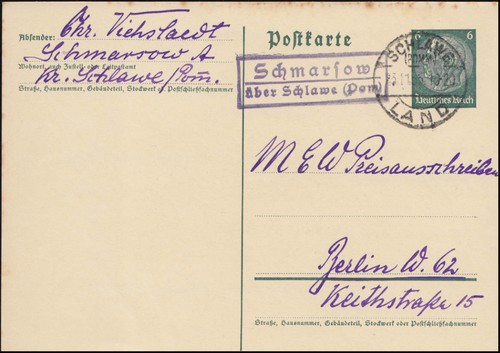 Absender: Chr. Viehstaedt
Schmarsow A
Wohnort, auch Zustell- oder Leitpostamt
Kr. Schlawe/Pom.
Straße, Hausnummer, Gebäudeteil, Stockwerk od. Postschließfachnummer
Postkarte
Schmarsow
über Schlawe (Pom)
SCHLAWE
LAND
6 6
Deutsches Reich
M E W Preisausschreiben
Berlin W. 62
Keithstraße 15
Straße, Hausnummer, Gebäudeteil, Stockwerk oder Postschließfachnummer